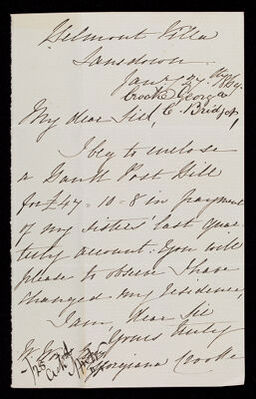 Belmont Villa
Lansdown
Jany 24th 1864
Crooke Georga
My dear Sir, C. Bridget,
I beg to enclose
a Bank Post Bill
for £47-10-8 in payment
of my sisters last quar-
terly account. You will
please to observe I have
changed my residence,
I am, dear Sir
Yours truly
Georgiana Crooke